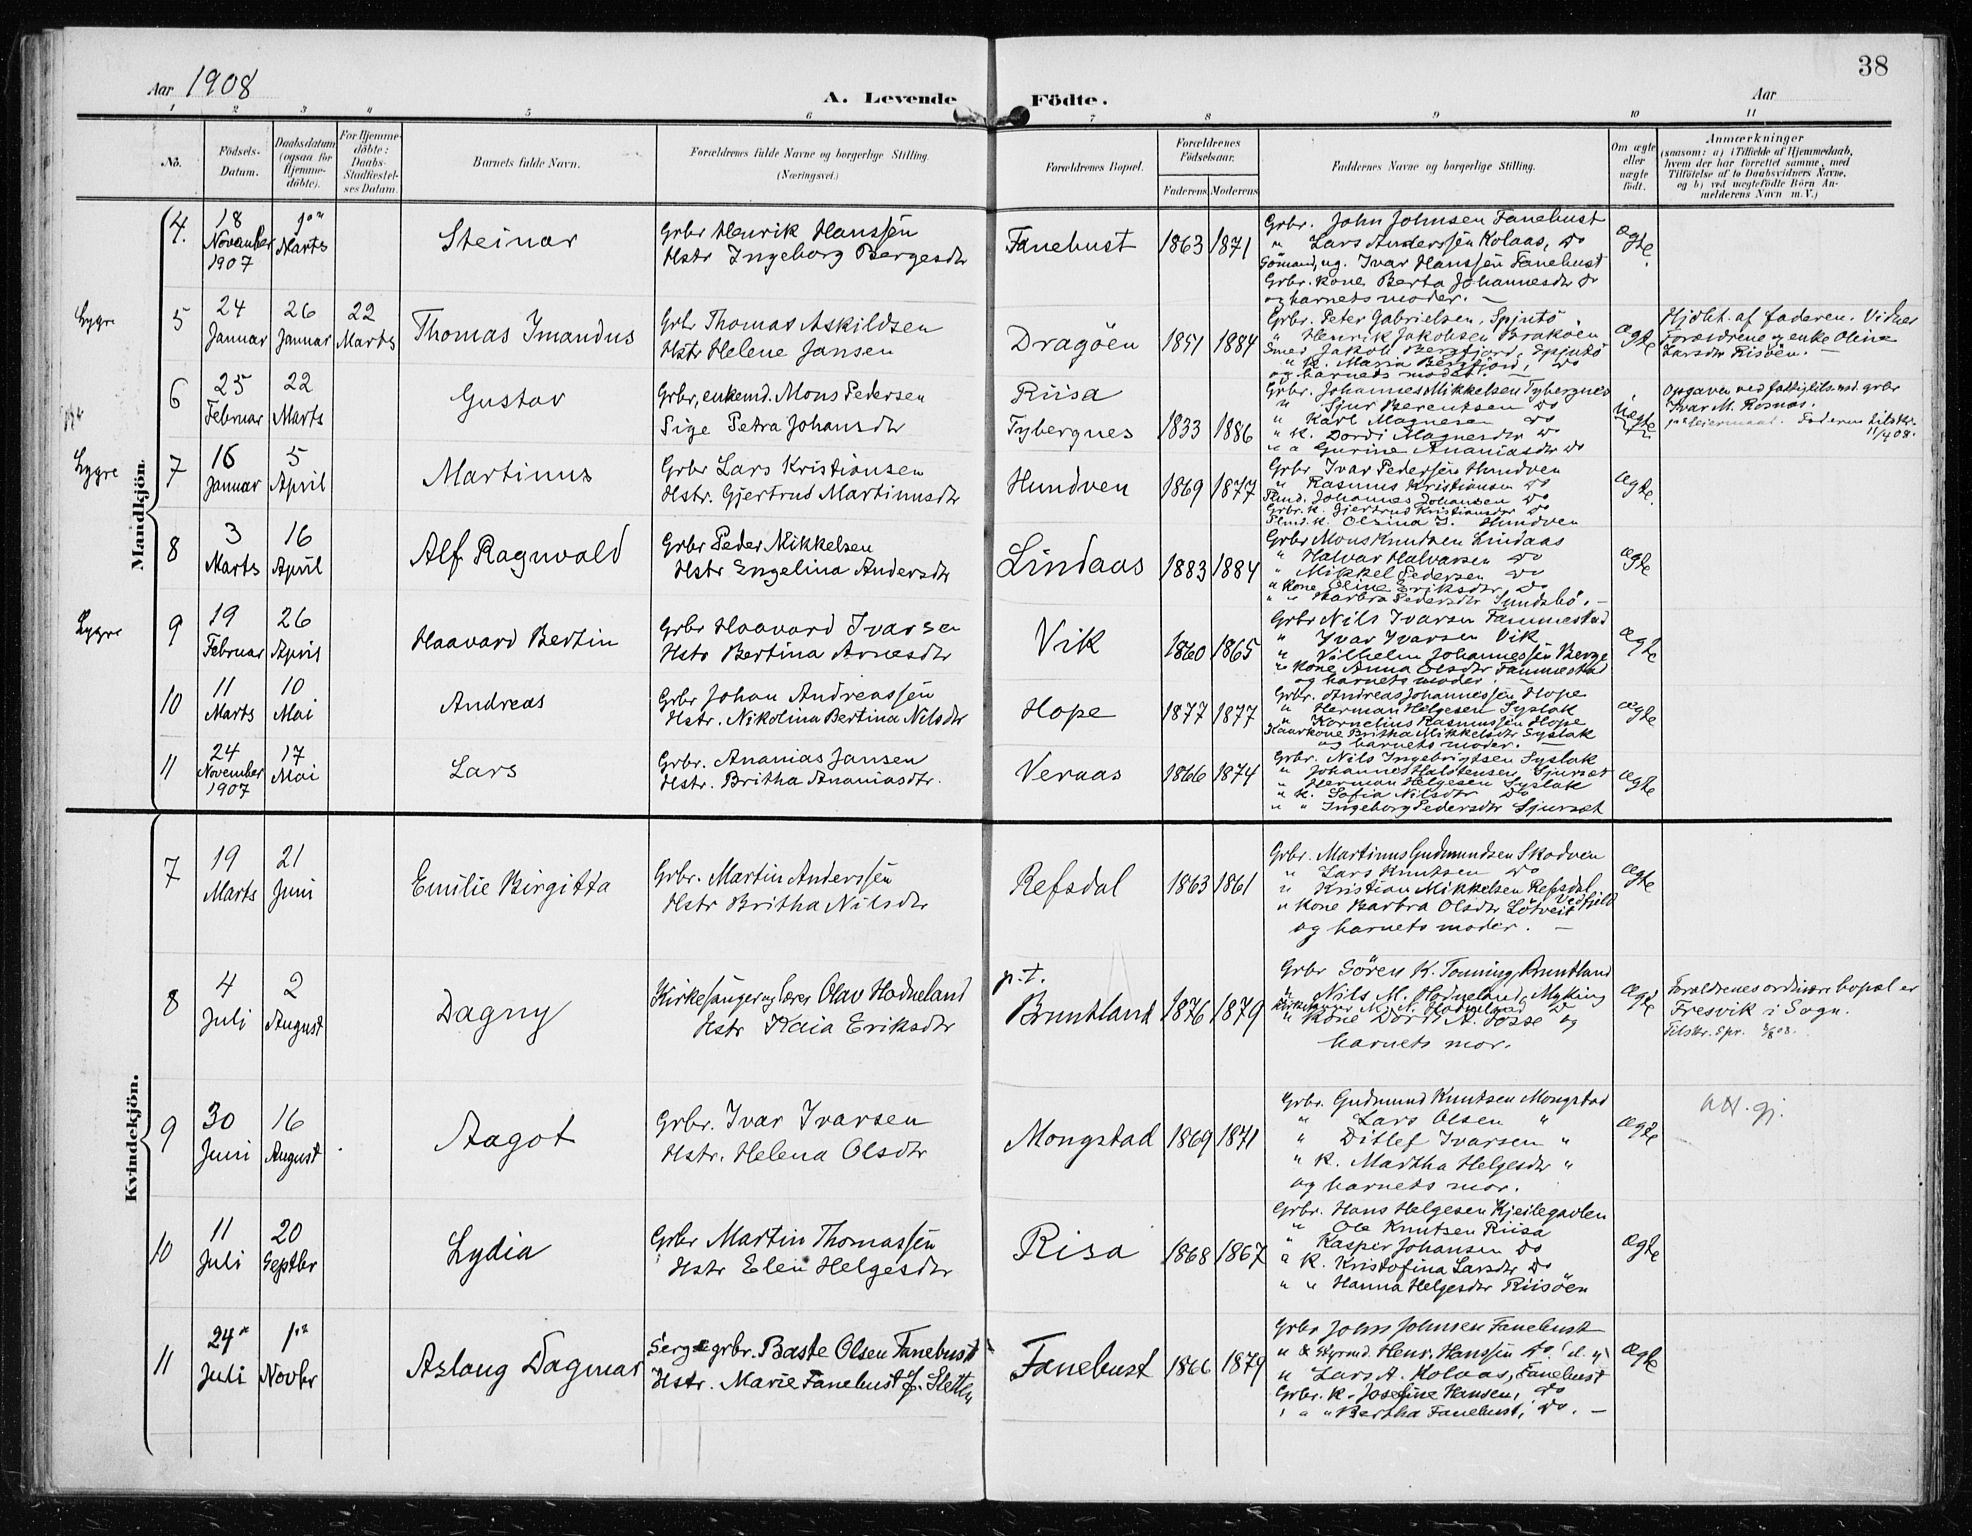 38
Aar 1908
A. Levende Födte.
Aar
1 2 3 4 5 6 7 8 9 10 11
No.
Födsels-Datum.
Daabsdatum (ogsaa for Hjemme-döbte).
For Hjemme-döbte: Daabs-Stadfæstel-ses Datum.
Barnets fulde Navn.
Forældrenes fulde Navne og borgerlige Stilling. (Næringsvei.)
Forældrenes Bopæl.
Forældrenes Födselsaar.
Faderens. Moderens.
Faddernes Navne og borgerlige Stilling.
Om ægte eller uægte födt.
Anmærkninger
(saasom: a) i Tilfælde af Hjemmedaab,
hvem der har forrettet samme, med
Tilföielse af to Daabsvidners Navne,
og b) ved uægtefödte Börn An-
melderens Navn m. V.)
Mandkjön.
4. 18 November 1907 1ste Marts
Steinar
Grbr Henrik Hanssen
Hstr Ingeborg Bergesdtr
Fanebust 1863 1871
Grbr. John Johnsen Fanebust
" Lars Anderssen Kolaas, Do
Sömand, ug. Ivar Hanssen Fanebust
Grbr. kone Berta Johannesdtr Do
og barnets moder. —
ægte.
Lygre
5 24 Januar 26 Januar 22 Marts
Thomas Imandus
Grbr Thomas Askildsen
Hstr Helene Jansen
Dragöen 1851 1884
Grbr. Peter Gabrielsen, Spjutö
" Henrik Jakobsen Braköen
Smed Jakob Bergfjord, Spjutö
" k. Maria Bergfjord, Do
og barnets moder. —
ægte
Hjdbt. af faderen. Vidner
Forældrene og enke Oline
Larsdtr Risöen. —
6 25 Februar 22 Marts
Gustav
Grbr, enkemd. Mons Pedersen
Pige Petra Johansdtr
Riisa
Tybergnes 1833 1886
Grbr. Johannes Mikkelsen Tybergnes
" Sjur Berentsen Do
" Karl Magnesen Do
" k. Dordi Magnesdtr Do
" " Gurine Ananiasdtr Do
uægte
Opgaven ved fattigtilsmd. grbr
Ivar M. Rosnæs.
1ste leiermaal. Faderen tilskr. 11/4 08.
Lygre
7 16 Januar 5 April
Martinus
Grbr Lars Kristiansen
Hstr. Gjertrud Martinusdtr
Hundven 1869 1877
Grbr Ivar Pedersen Hundven
" Rasmus Kristiansen Do
Plmd. Johannes Johansen Do
Grbr. k. Gjertrud Kristiansdtr Do
Plmd. k. Olsina I. Hundven
ægte.
8 3 Marts 16 April
Alf Ragnvald
Grbr Peder Mikkelsen
Hstr Engelina Andersdtr
Lindaas 1883 1884
Grbr Mons Knutsen Lindaas
" Halvar Halvarsen Do
" Mikkel Pedersen Do
" Kone Oline Eriksdtr Do
" " Barbra Pedersdtr Sundsbö. —
ægte
Lygre
9 19 Februar 26 April
Haavard Bertin
Grbr Haavard Ivarsen
Hstr Bertina Arnesdtr
Vik 1860 1865
Grbr Nils Ivarsen Fammestad
" Ivar Ivarsen Vik
" Vilhelm Johannessen Berge
" Kone Anna Olsdtr Fammestad
og barnets moder —
ægte
10 11 Marts 10 Mai
Andreas
Grbr Johan Andreassen
Hstr. Nikolina Bertina Nilsdtr
Hope 1877 1877
Grbr. Andreas Johannessen Hope
" Herman Helgesen Syslak
" Kornelius Rasmussen Hope
Kaarkone Britha Mikkelsdtr Syslak
og barnets moder. —
ægte
11 24 November 1907 17 Mai
Lars
Grbr. Ananias Jansen
Hstr. Britha Ananiasdtr.
Veraas 1866 1874
Grbr. Nils Ingebrigtsen Syslak
" Johannes Halstensen Sjurset
" Herman Helgesen Syslak
" k. Sofia Nilsdtr Do
" " Ingeborg Pedersdtr Sjurset
ægte
Kvindekjön.
7 19 Marts 21 Juni
Emilie Birgitta
Grbr. Martin Anderssen
Hstr Britha Nilsdtr
Refsdal 1863 1861
Grbr. Martinus Gudmundsen Skodven
" Lars Knutsen Do
" Kristian Mikkelsen Refsdal
" Kone Barbra Olsdtr Lötveit Vedfjeld
og barnets moder. —
ægte
8 4 Juli 2 August
Dagny
Kirkesanger og lærer Olav Hodneland
Hstr Kaia Eriksdtr
p.t.
Bruntland 1876 1879
Grbr Sören K. Tonning, Bruntland
" Nils M. Hodneland, Myking
" Kone Dordi A. Fosse Do og
barnets mor.
ægte
Forældrenes ordinære bopæl er
Fresvik i Sogn.
Tilskr. Spr. 3/8 08.
9 30 Juni 16 August
Aagot
Grbr. Ivar Ivarsen
Hstr. Helena Olsdtr
Mongstad 1869 1871
Grbr. Gudmund Knutsen Mongstad
" Lars Olsen "
" Ditlef Ivarsen "
" k. Martha Helgesdtr "
og barnets mor.
ægte
10 11 Juli 20 Septbr
Lydia
Grbr Martin Thomassen
Hstr Elen Helgesdtr
Risa 1868 1867
Grbr. Hans Helgesen Kjeilegavlen
" Ole Knutsen Riisa
" Kasper Johansen Do
" k. Kristofina Larsdtr Do
" " Hanna Helgesdtr Riisöen
ægte
11 24de Juli 1ste Novbr
Aslaug Dagmar
Serg. & grbr. Baste Olsen Fanebust
Hstr. Marie Fanebust f. Sletten
Fanebust 1866 1879
Grbr John Johnsen Fanebust
" & Styrmd. Henr. Hanssen Do.
" Lars A. Kolaas, Fanebust
Grbr. k. Josefine Hansen, Do
" " Bertha Fanebust, Do. —
ægte